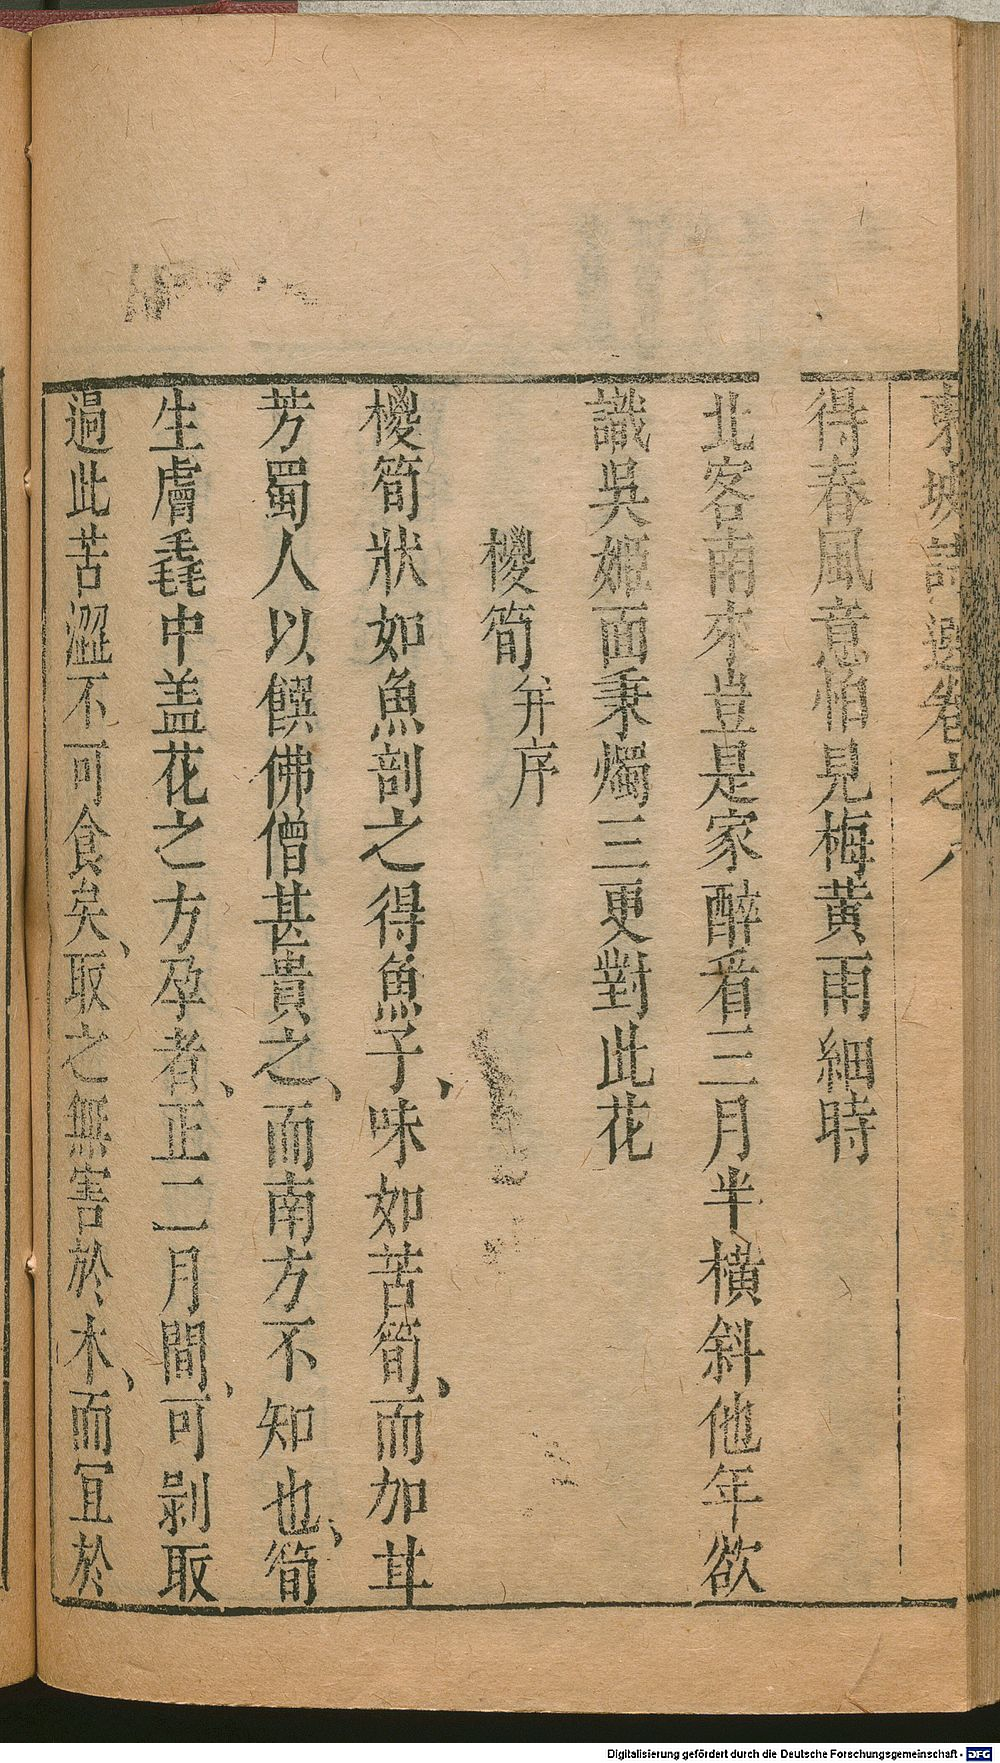 東坡詩選卷之八
得春風意怕見梅黃雨細時
北客南來豈是家醉看三月半橫斜他年欲
識吳姬面秉燭三更對此花
椶筍并序
椶筍狀如魚剖之得魚子、味如苦筍、而加甘
芳蜀人以饌佛僧甚貴之、而南方不知也、筍
生膚毳中盖花之方孕者、正二月間、可剝取
過此苦澀不可食矣、取之無害於木、而宜於
Digitalisierung gefördert durch die Deutsche Forschungsgemeinschaft - DFG